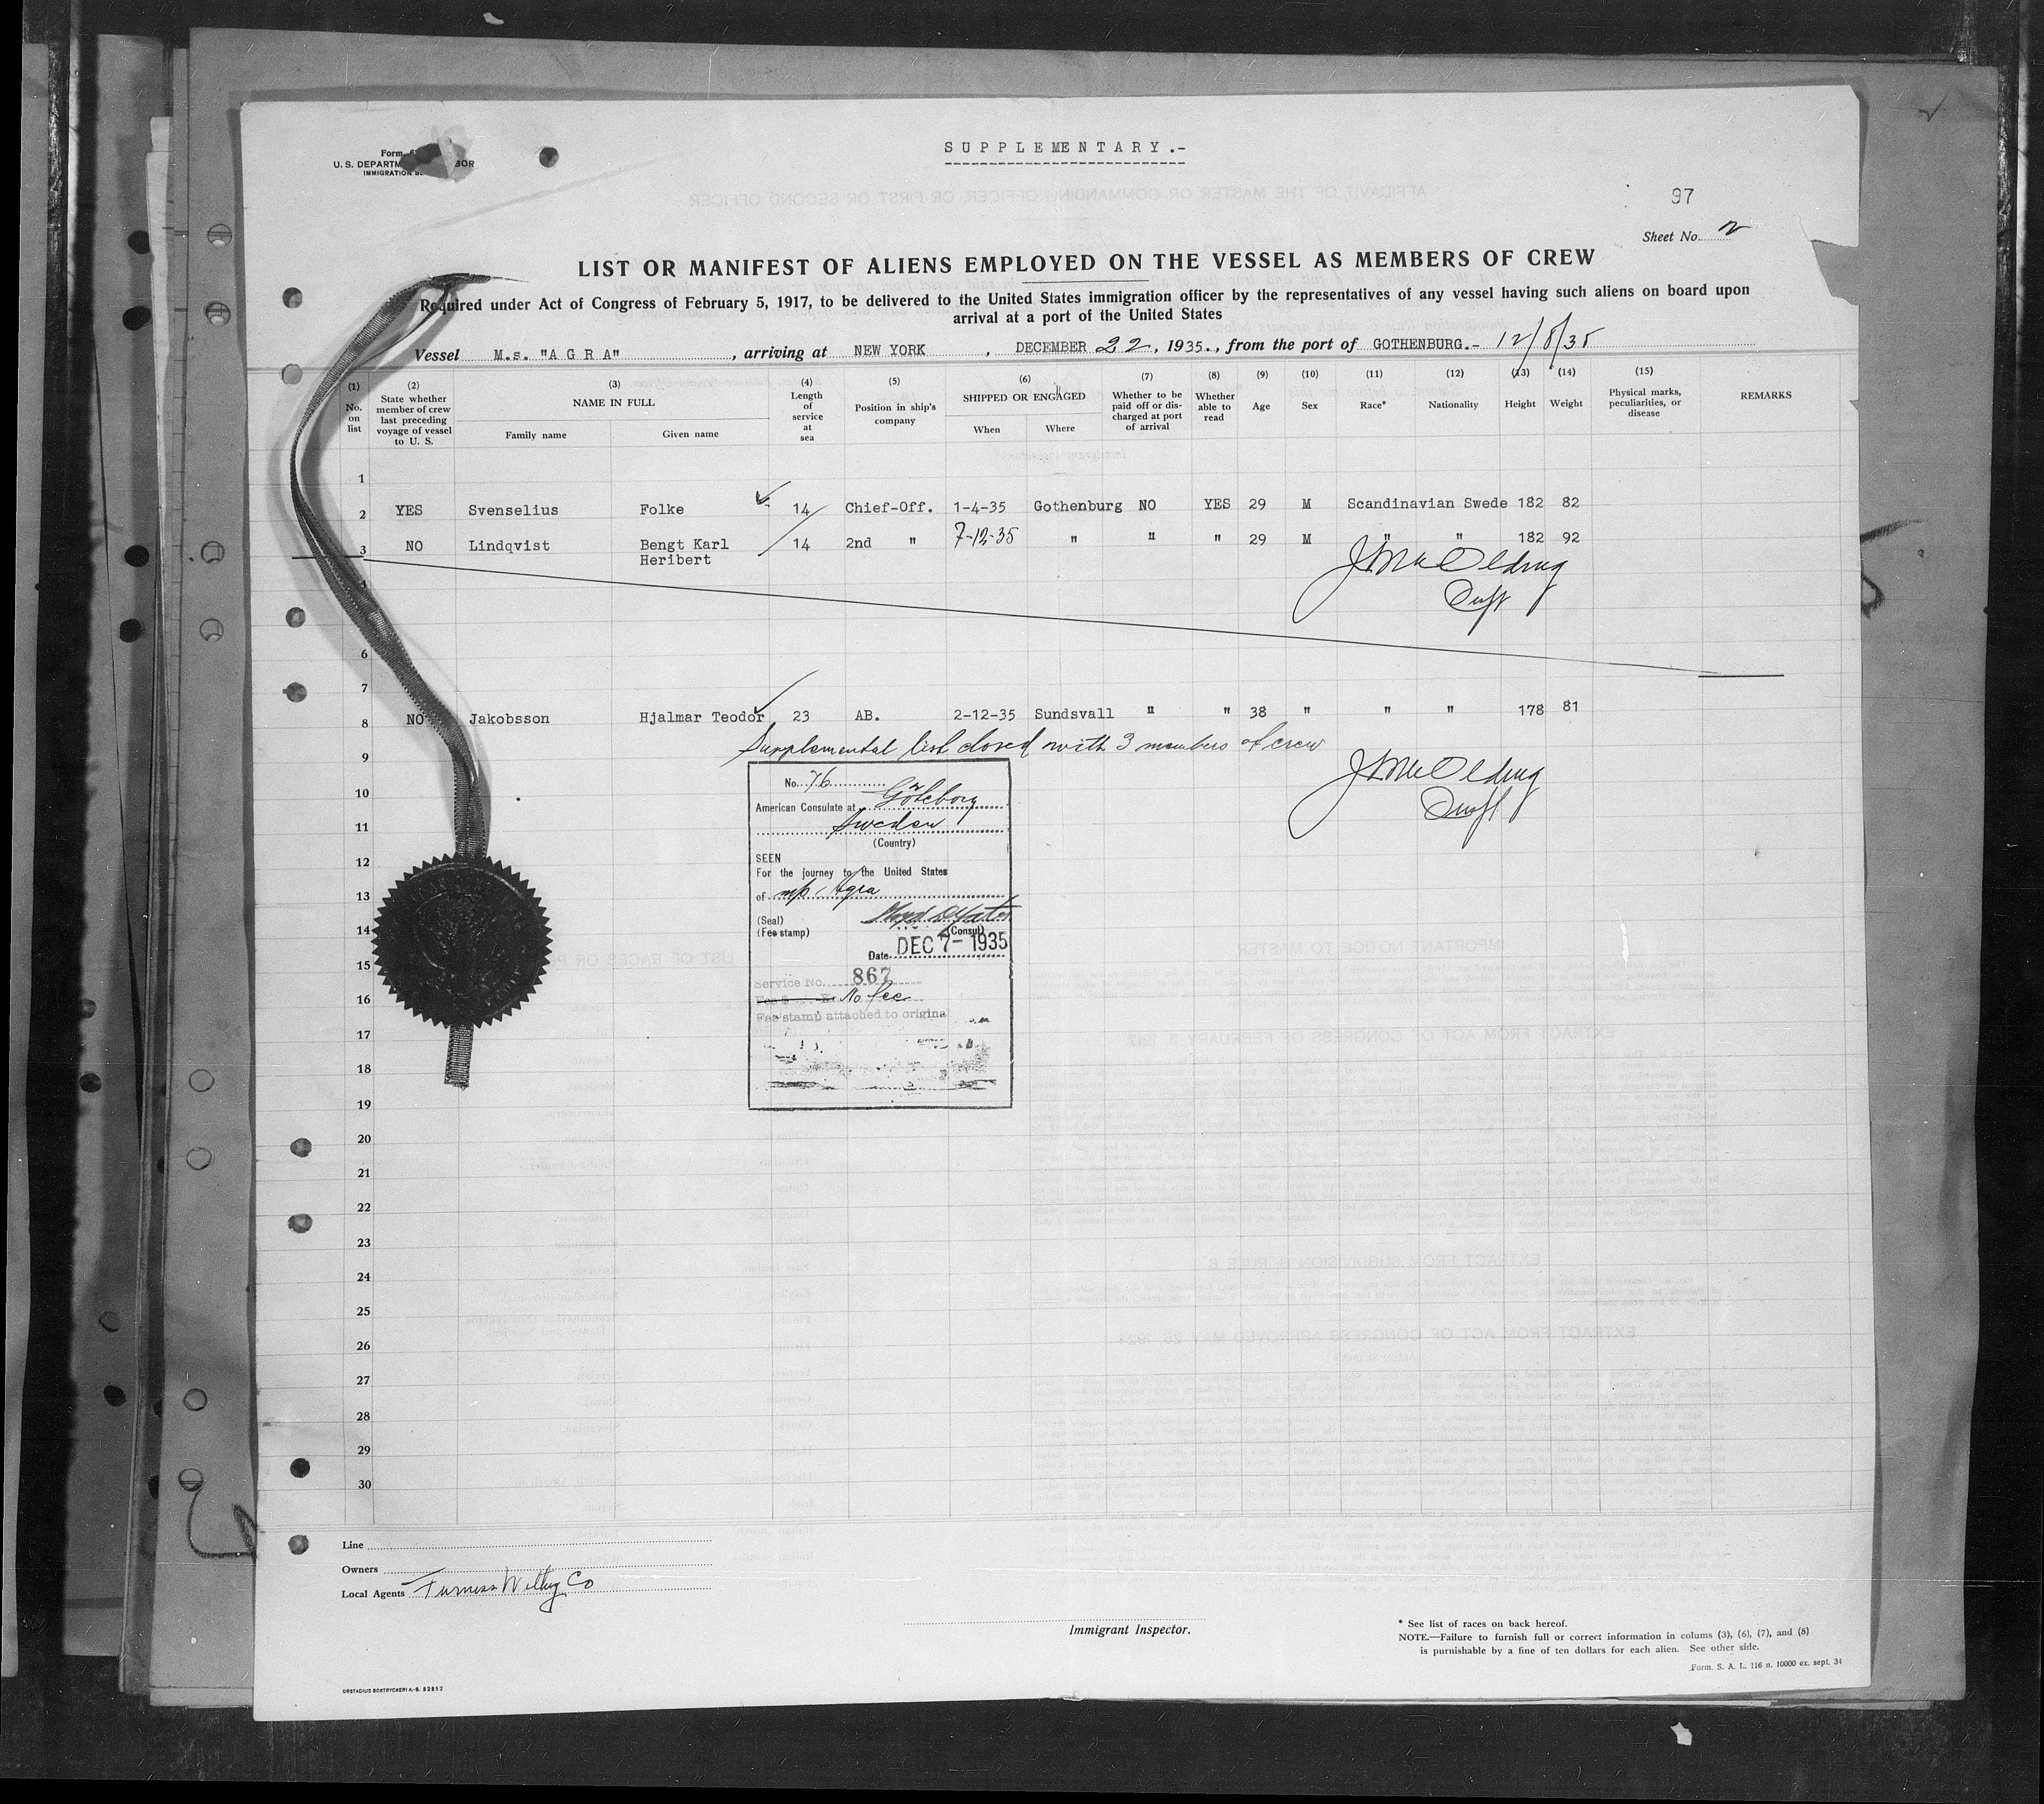 SUPPLEMENTARY.-
Form
U. S. DEPARTM BOR
IMMIGRATION
97
Sheet No. 2
LIST OR MANIFEST OF ALIENS EMPLOYED ON THE VESSEL AS MEMBERS OF CREW
Required under Act of Congress of February 5, 1917, to be delivered to the United States immigration officer by the representatives of any vessel having such aliens on board upon
arrival at a port of the United States
Vessel M.s. "A G R A", arriving at NEW YORK, DECEMBER 22, 1935., from the port of GOTHENBURG.- 12/8/35
(1) No. on list
(2) State whether member of crew last preceding voyage of vessel to U. S.
(3) NAME IN FULL Family name Given name
(4) Length of service at sea
(5) Position in ship's company
(6) SHIPPED OR ENGAGED When Where
(7) Whether to be paid off or discharged at port of arrival
(8) Whether able to read
(9) Age
(10) Sex
(11) Race*
(12) Nationality
(13) Height
(14) Weight
(15) Physical marks, peculiarities, or disease
REMARKS
1
2 YES Svenselius Folke 14 Chief-Off. 1-4-35 Gothenburg NO YES 29 M Scandinavian Swede 182 82
3 NO Lindqvist Bengt Karl 14 2nd " 7-12-35 " " " 29 M " " 182 92
Heribert
4
6
7
8 NO Jakobsson Hjalmar Teodor 23 AB. 2-12-35 Sundsvall " " 38 " " " 178 81
Supplemental list closed with 3 members of crew
9
10
11
12
13
14
15
16
17
18
19
20
21
22
23
24
25
26
27
28
29
30
No. 76
American Consulate at Göteborg
Sweden
(Country)
SEEN
For the journey to the United States
of m/s Agra
(Seal)
(Fee stamp)
(Consul)
Date DEC 7- 1935
Service No. 867
No fee
Fee stamp attached to original
Line
Owners
Local Agents Furness Withy Co
Immigrant Inspector.
* See list of races on back hereof.
NOTE.—Failure to furnish full or correct information in colums (3), (6), (7), and (8)
is purnishable by a fine of ten dollars for each alien. See other side.
Form. S. A. L. 116 n. 10000 ex. sept. 34
ORSTADIUS BOKTRYCKERI A.-B. 52852